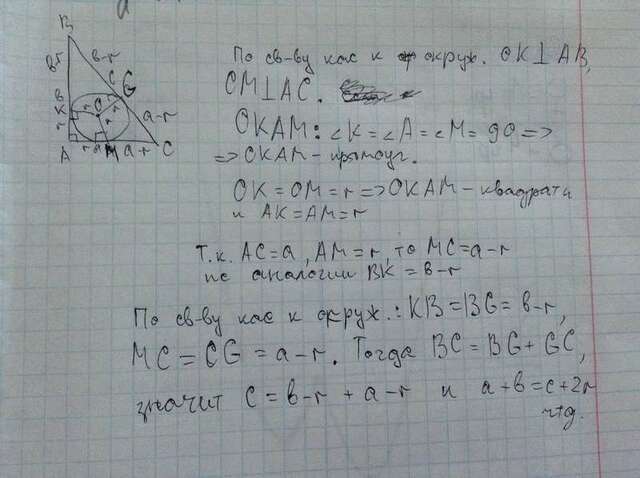 По св-ву кас к окруж. OK⊥AB,
OM⊥AC.
OKAM: ∠K=∠A=∠M=90 =>
=> OKAM – прямоуг.
OK=OM=r => OKAM – квадрат
и AK=AM=r
Т.к. AC=a, AM=r, то MC=a-r
по аналогии BK=в-r
По св-ву кас к окруж.: KB=BG=в-r,
MC=CG=a-r. Тогда BC=BG+GC,
значит c=в-r+a-r и a+в=c+2r
чтд.
B
в-r
G
a-r
K
r
A
M
a-r
C